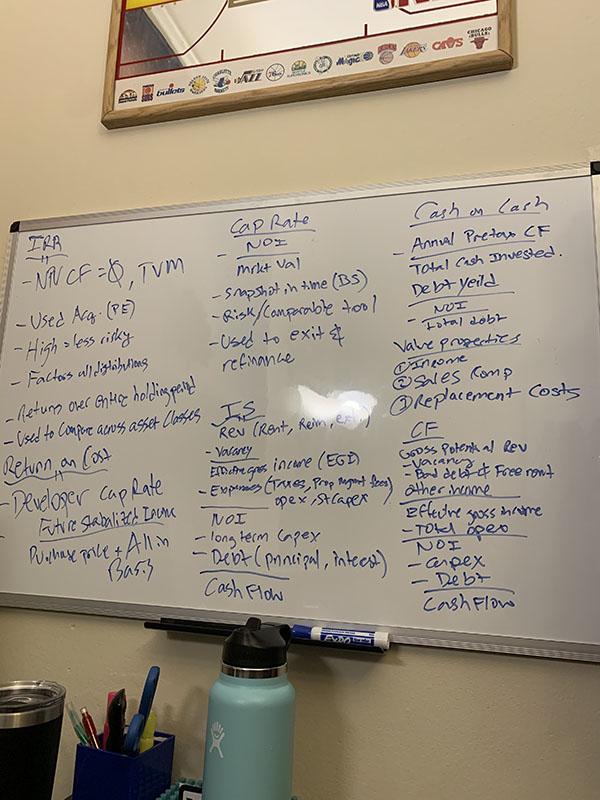 NBA
SUNS
bullets
JAZZ
76ers
Magic
LAKERS
CAVS
CHICAGO
BULLS
IRR
- NPV CF = 0, TVM
- Used Acq. (PE)
- High = less risky
- Factors all distributions
- Returns over entire holding period
- Used to compare across asset classes
Return on Cost
- Developer Cap Rate
- Future stabalized Income
Purchase price + All in
Basis
Cap Rate
- NOI
Mrkt Val
- Snapshot in time (BS)
- Risk/Comparable tool
- Used to exit &
refinance
IS
Rev (Rent, Reim, etc.)
- Vacancy
Effective gross income (EGI)
- Expenses (Taxes, Prop mgmt fees)
opex, st capex
NOI
- long term capex
- Debt (principal, interest)
Cash Flow
Cash on Cash
- Annual Pretax CF
Total Cash Invested.
Debt Yeild
- NOI
total debt
Value properties
① Income
② Sales Comp
③ Replacement Costs
CF
Gross Potential Rev
- Vacancy
- Bad debt & Free rent
other income
Effective gross income
- Total opex
NOI
- capex
- Debt
Cash Flow
EXPO